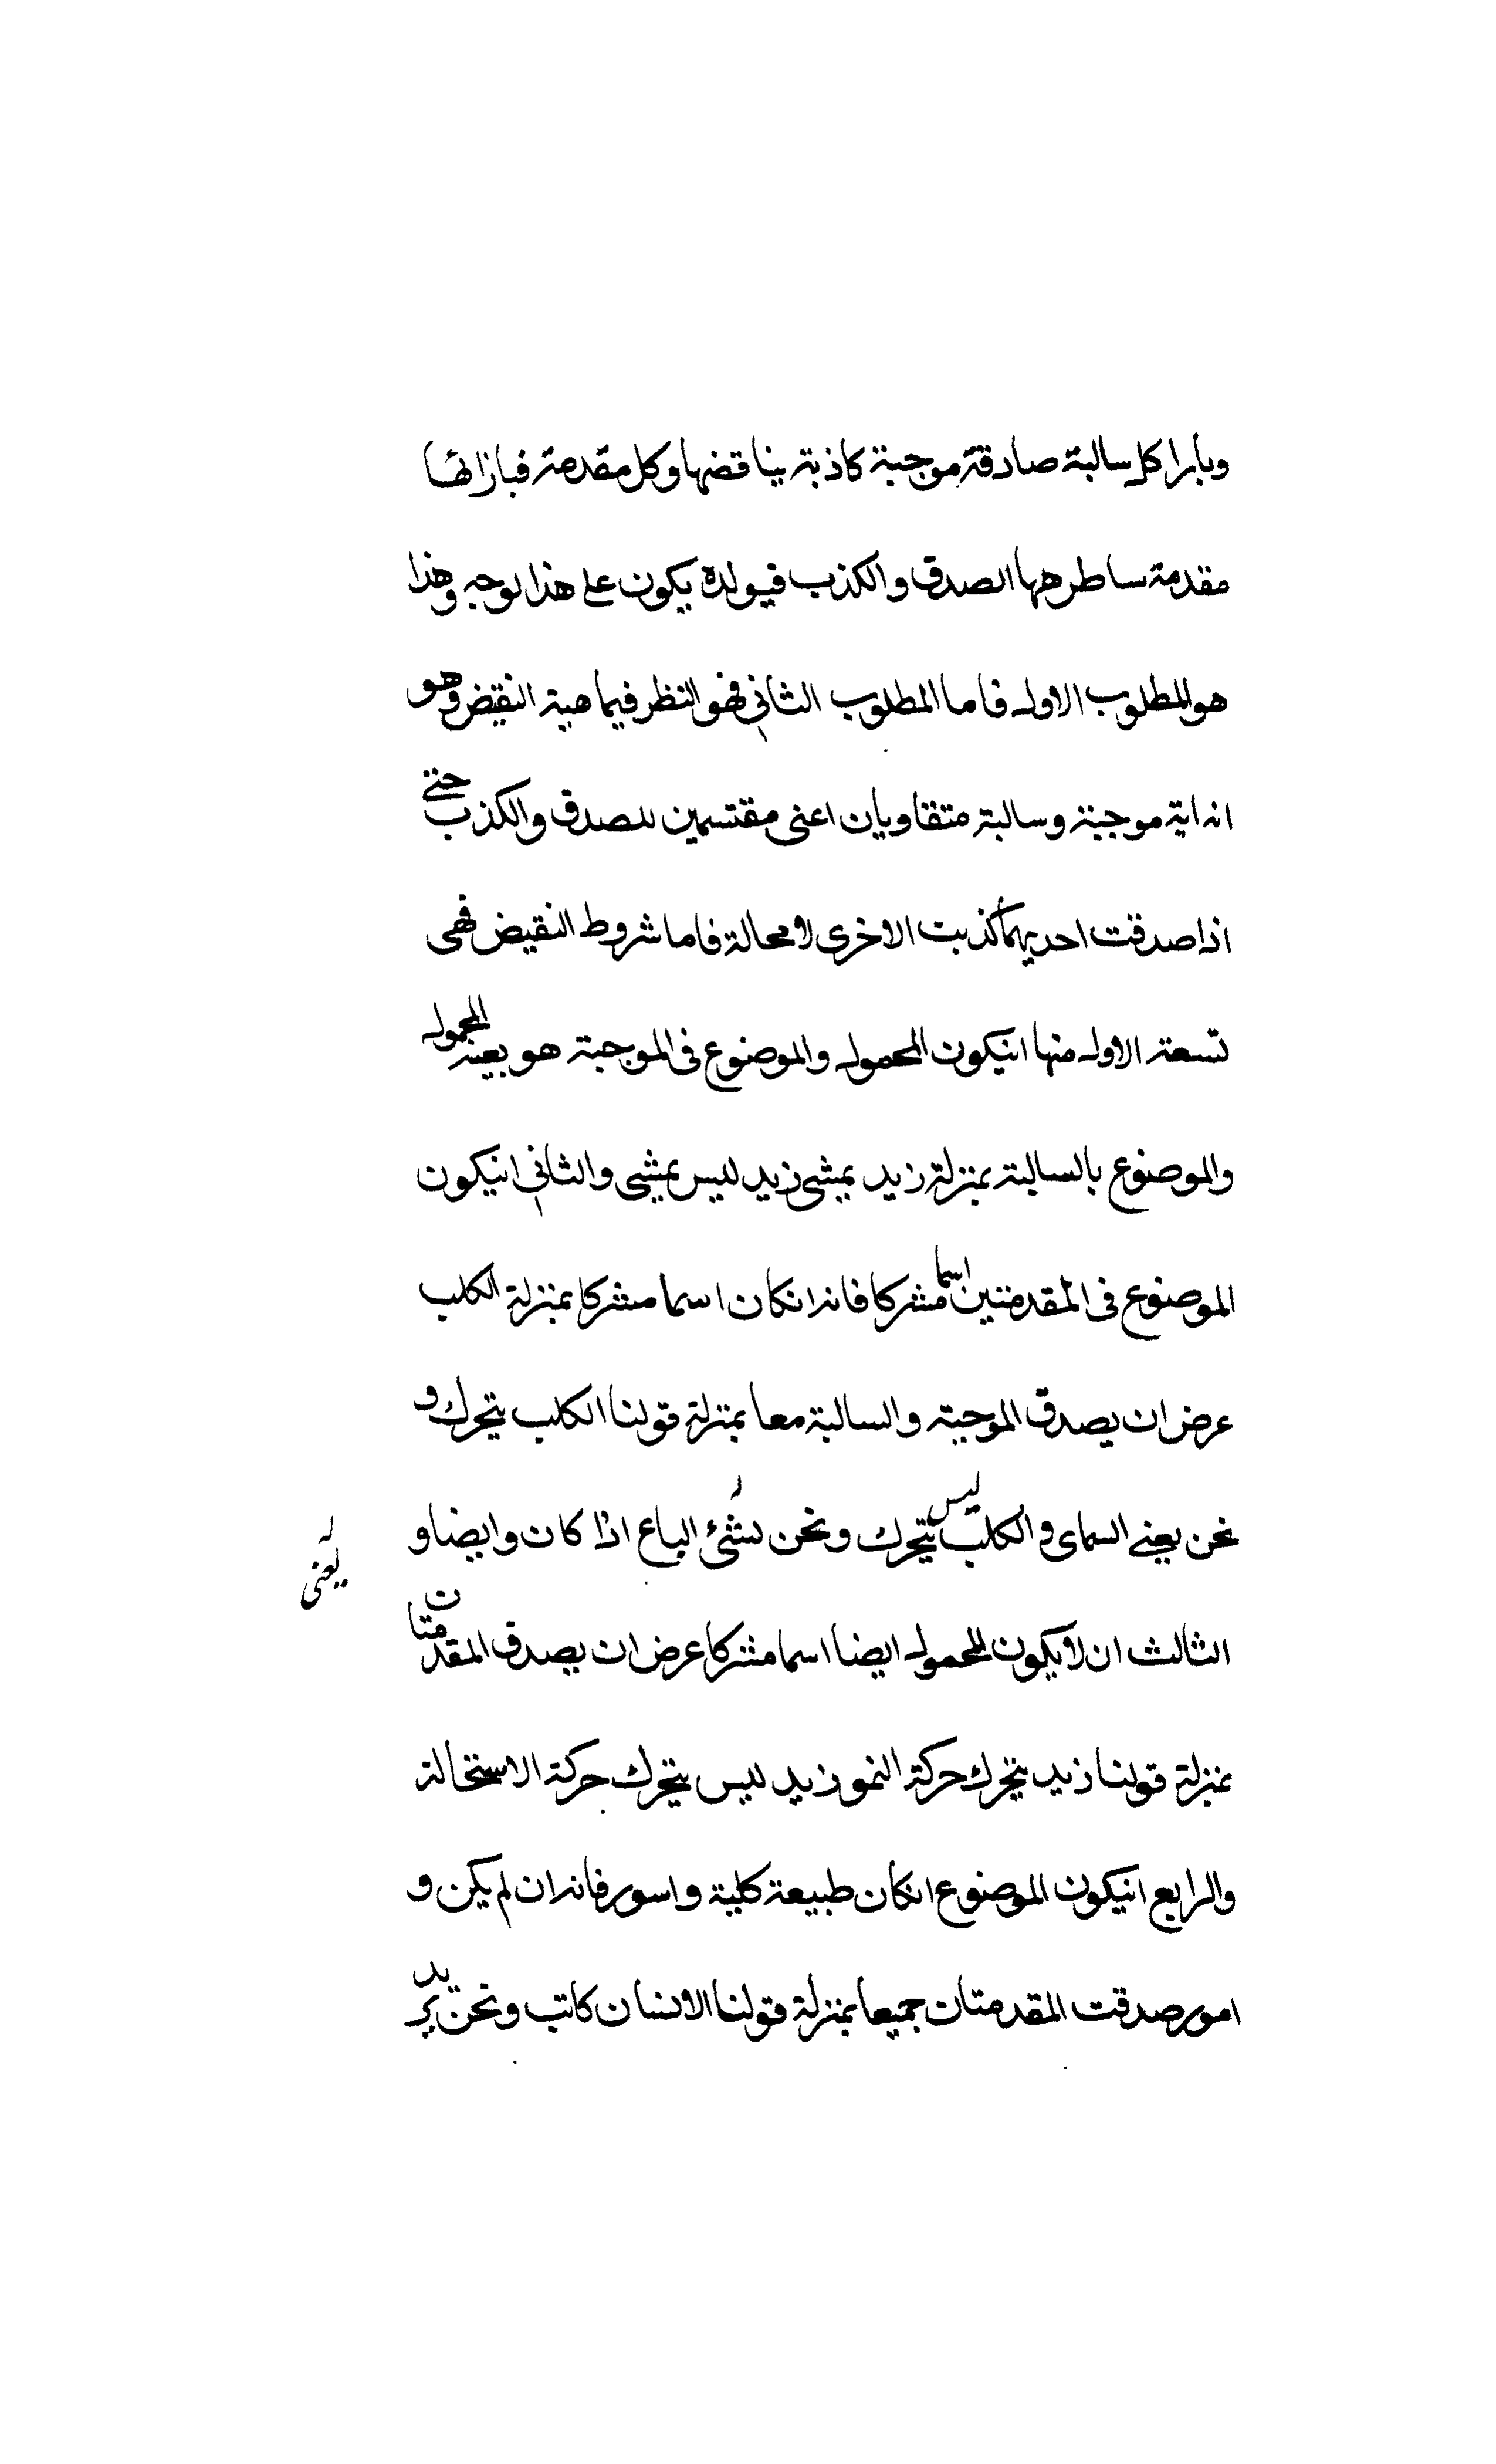 وبابرا كل سالبة صادقة موجبة كاذبة يناقضها وكل مقدمة فبازائها
مقدمة ساطرهها الصدق والكذب فيولده يكون على هذا لوجه وهذا
هو المطلوب الاول فاما المطلوب الثاني فهو النظر فيماهية النقيض وهو
انه اية موجبة وسالبة متقاويان اعنى مقتسمين للصدق والكذب حتى
اذا صدقت احديهما كذبت الاخرى لا محالة فاما شروط النقيض فهى
تسعة الاول منها انيكون المحمول والموضوع فى الموجبة هو بعينه المحمول
والموضوع بالسالبة بمنزلة زيد يمشى زيد ليس يمشى والثاني انيكون
الموضوع فى المقدمتين اسما مشركا فانه انكان اسما مشركا بمنزلة الكلب
عرض ان يصدق الموجبة والسالبة معا بمنزلة قولنا الكلب يتحرك و
نحن يعنى السماى والكلب ليس يتحرك ونحن لشئ الباع اذا كان وايضا و
له يعنى
الثالث ان لا يكون المحمول ايضا اسما مشركا عرض ان يصدق المقدمتان
بمنزلة قولنا زيد يتحرك حركة النمو زيد ليس يتحرك حركة الاستحالة
والرابع انيكون الموضوع انكان طبيعة كلية واسور فانه ان لم يكن و
امور صدقت المقدمتان جميعا بمنزلة قولنا الانسان كاتب ونحن نريد